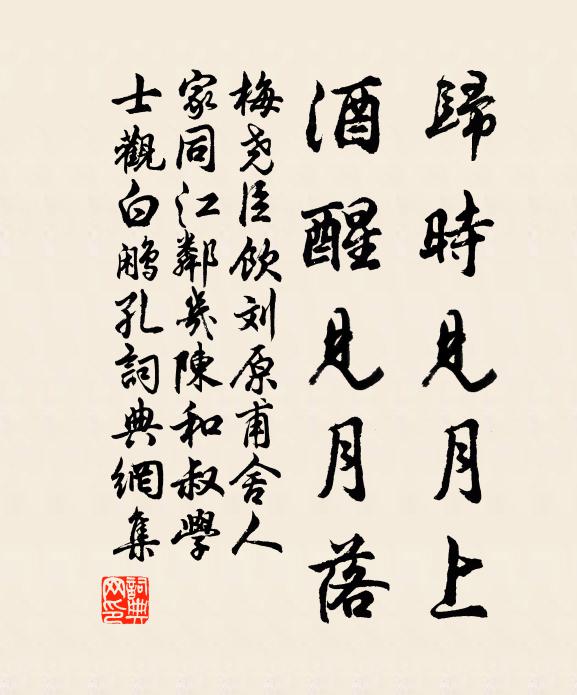 歸時見月上
酒醒見月落
梅堯臣飲刘原甫舍人
家同江鄰幾陳和叔學
士觀白鷴孔詞典網集
詞典網印